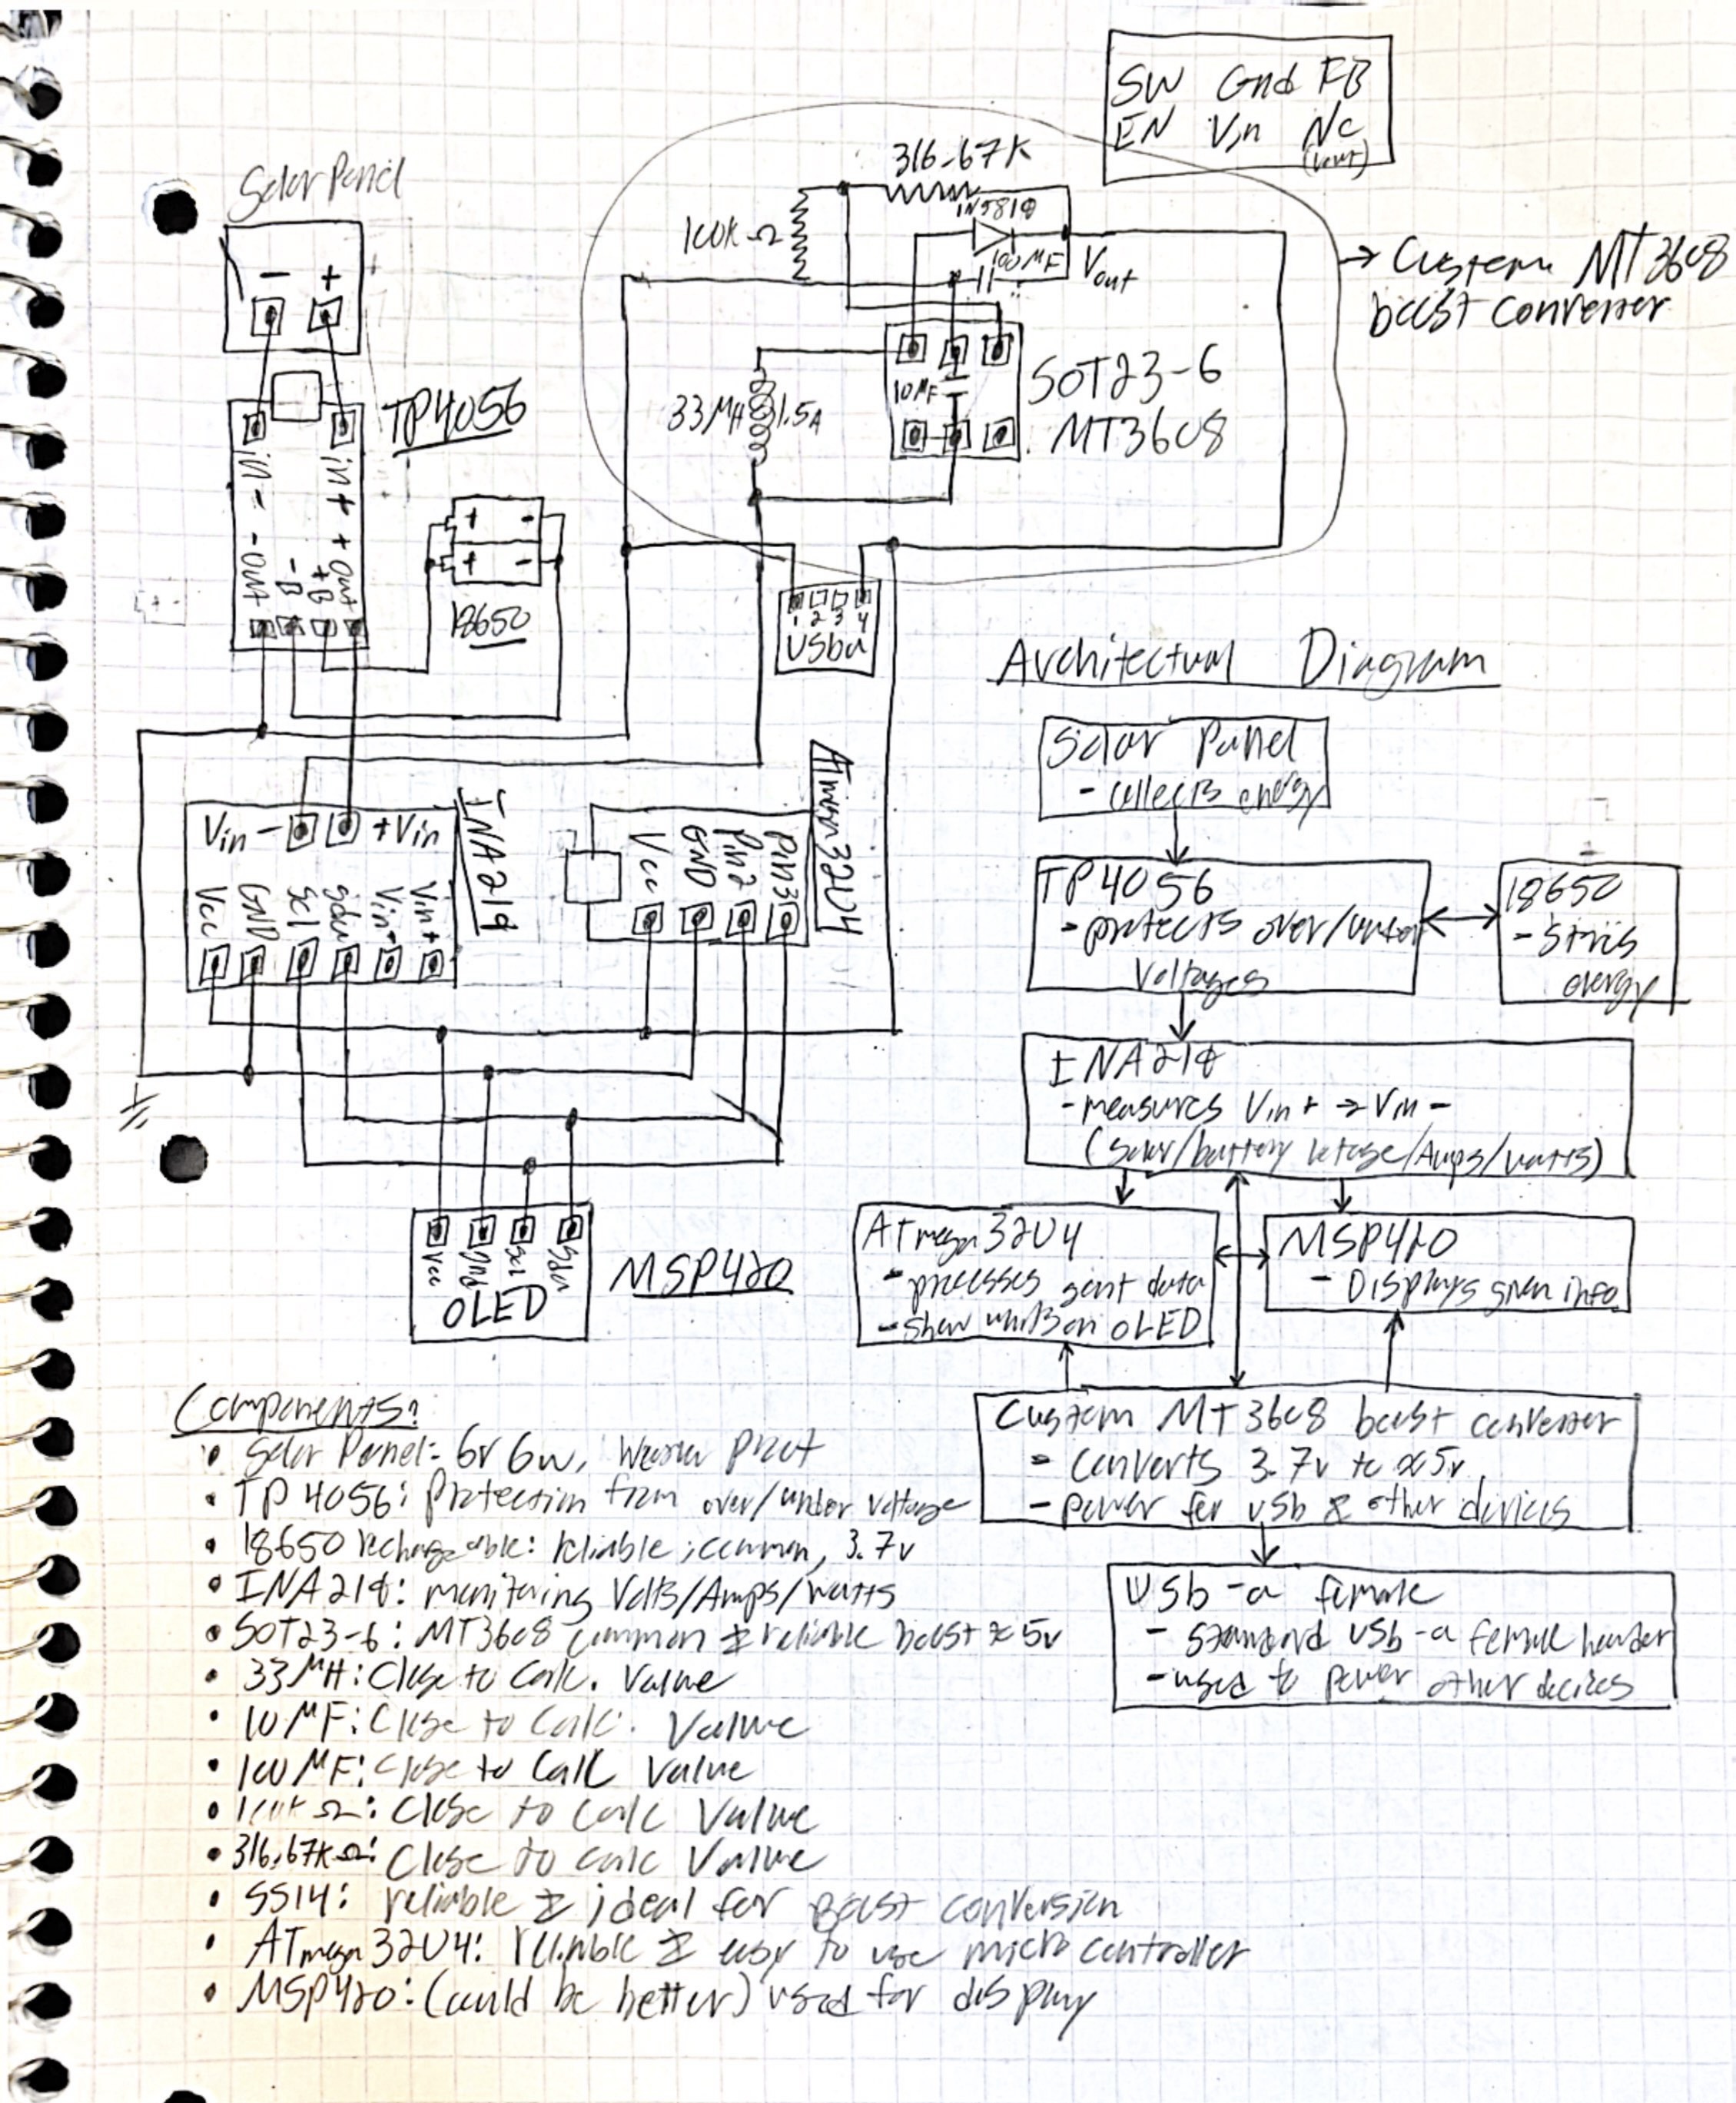 SW Gnd FB
EN Vin Nc
(Vout)
Solar Panel
- +
316.67K
100K Ω
1N5819
100MF
Vout
→ Custom MT3608
boost converter
TP4056
in - in +
- Out - B + B + Out
+ -
+ -
18650
33MH 1.5A
10MF
SOT23-6
MT3608
1 2 3 4
USba
Vin - + Vin
Vcc GND Scl Sda Vin- Vin+
INA219
Vcc GND Pin2 Pin3
ATmega32U4
Vcc Gnd Scl Sda
OLED
MSP420
Architectual Diagram
Solar Panel
- collects energy
TP4056
- protects over/under
voltages
18650
- Stores
energy
INA219
- measures Vin+ → Vin-
(Solar/battery /Amps/watts)
ATmega32U4
- processes sent data
- show units on OLED
MSP420
- Displays given info
Custom MT3608 boost converter
- Converts 3.7v to ≈5v
- power for usb & other devices
USb-a female
- standard USb-a female header
- used to power other devices
Components:
• Solar Panel: 6v 6w,
• TP4056: Protection from over/under voltage
• 18650 rechargeable: reliable, common, 3.7v
• INA219: monitoring Volts/Amps/watts
• SOT23-6: MT3608 common & reliable boost ≈ 5v
• 33MH: Close to Calc. Value
• 10MF: Close to Calc. Value
• 100MF: close to Calc Value
• 100K Ω: Close to Calc Value
• 316.67K Ω: Close to calc Value
• SS14: reliable & ideal for Boost conversion
• ATmega32U4: reliable & easy to use micro controller
• MSP420: (could be better) used for display